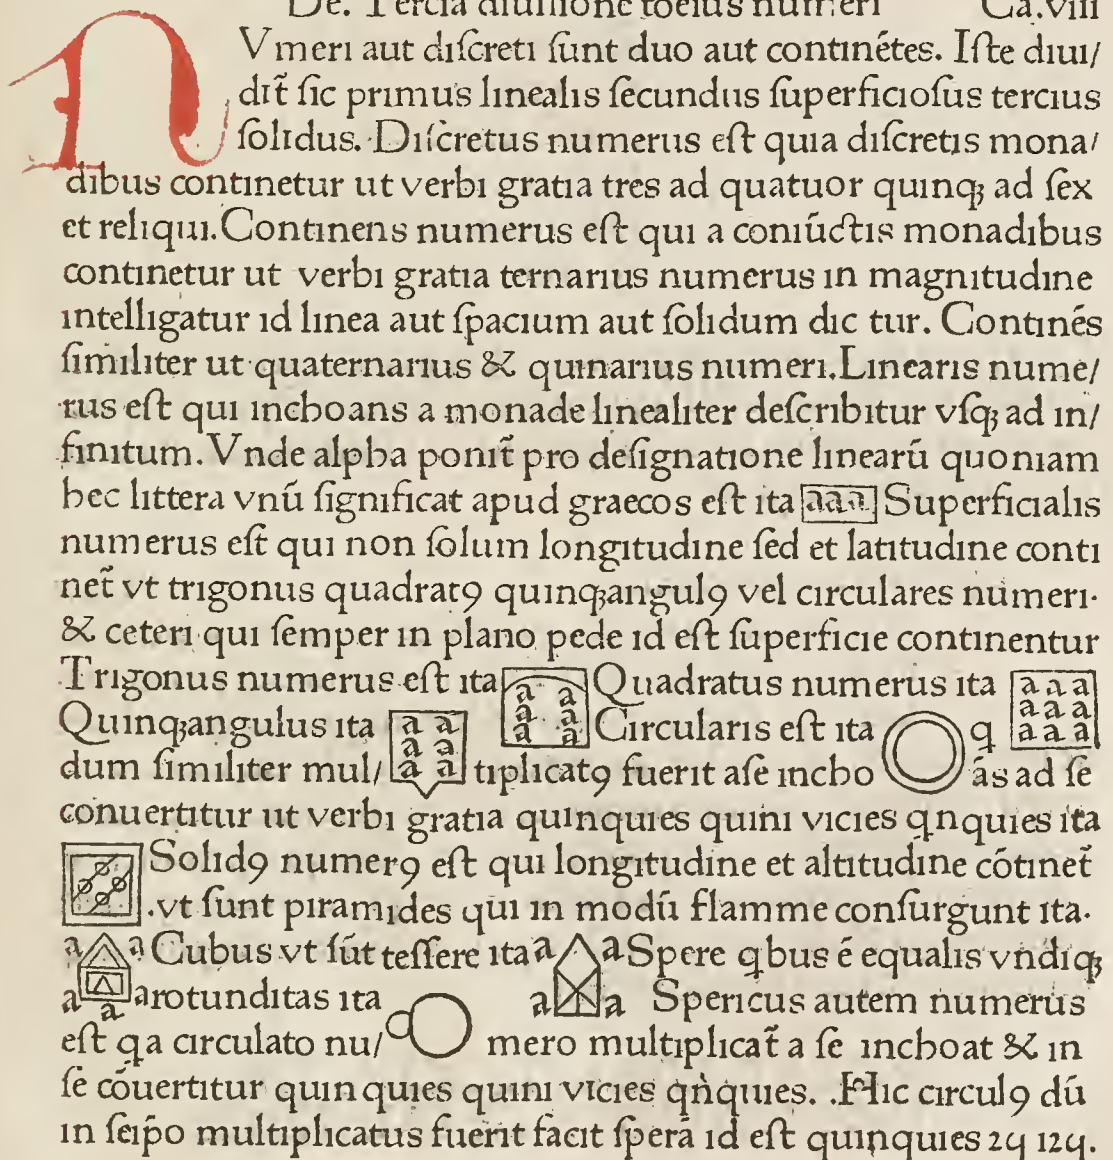 De. Tercia diuisione tocius numeri Ca.viii
NVmeri aut diſcreti ſunt duo aut continẽtes. Iſte diui/
dit̃ ſic primus linealis ſecundus ſuperficioſus tercius
ſolidus. Diſcretus numerus eſt quia diſcretis mona/
dibus continetur ut verbi gratia tres ad quatuor quinqꝫ ad ſex
et reliqui. Continens numerus eſt qui a coniũctis monadibus
continetur ut verbi gratia ternarius numerus in magnitudine
intelligatur id linea aut ſpacium aut ſolidum dic tur. Continẽs
ſimiliter ut quaternarius & quinarius numeri. Linearis nume/
rus eſt qui inchoans a monade linealiter deſcribitur vſqꝫ ad in/
finitum. Vnde alpha ponit̃ pro deſignatione linearũ quoniam
hec littera vnũ ſignificat apud graecos eſt ita aaa Superficialis
numerus eſt qui non ſolum longitudine ſed et latitudine conti
net̃ vt trigonus quadratꝯ quinqꝫangulꝯ vel circulares numeri.
& ceteri qui ſemper in plano pede id eſt ſuperficie continentur
Trigonus numerus eſt ita a a a a a a Quadratus numerus ita a a a a a a a a a
Quinqꝫangulus ita a a a a a a Circularis eſt ita q
dum ſimiliter mul/ tiplicatꝯ fuerit aſe incho ãs ad ſe
conuertitur ut verbi gratia quinquies quini vicies qnquies ita
Solidꝯ numerꝯ eſt qui longitudine et altitudine cõtinet̃
.vt ſunt piramides qui in modũ flamme conſurgunt ita.
a a Cubus vt ſũt teſſere ita a a Spere qbus ẽ equalis vndiqꝫ
a a arotunditas ita a a Spericus autem numerus
eſt qa circulato nu/ mero multiplicat̃ a ſe inchoat & in
ſe cõuertitur quin quies quini vicies qnquies. Hic circulꝯ dũ
in ſeipo multiplicatus fuerit facit ſperã id eſt quinquies 25 125.